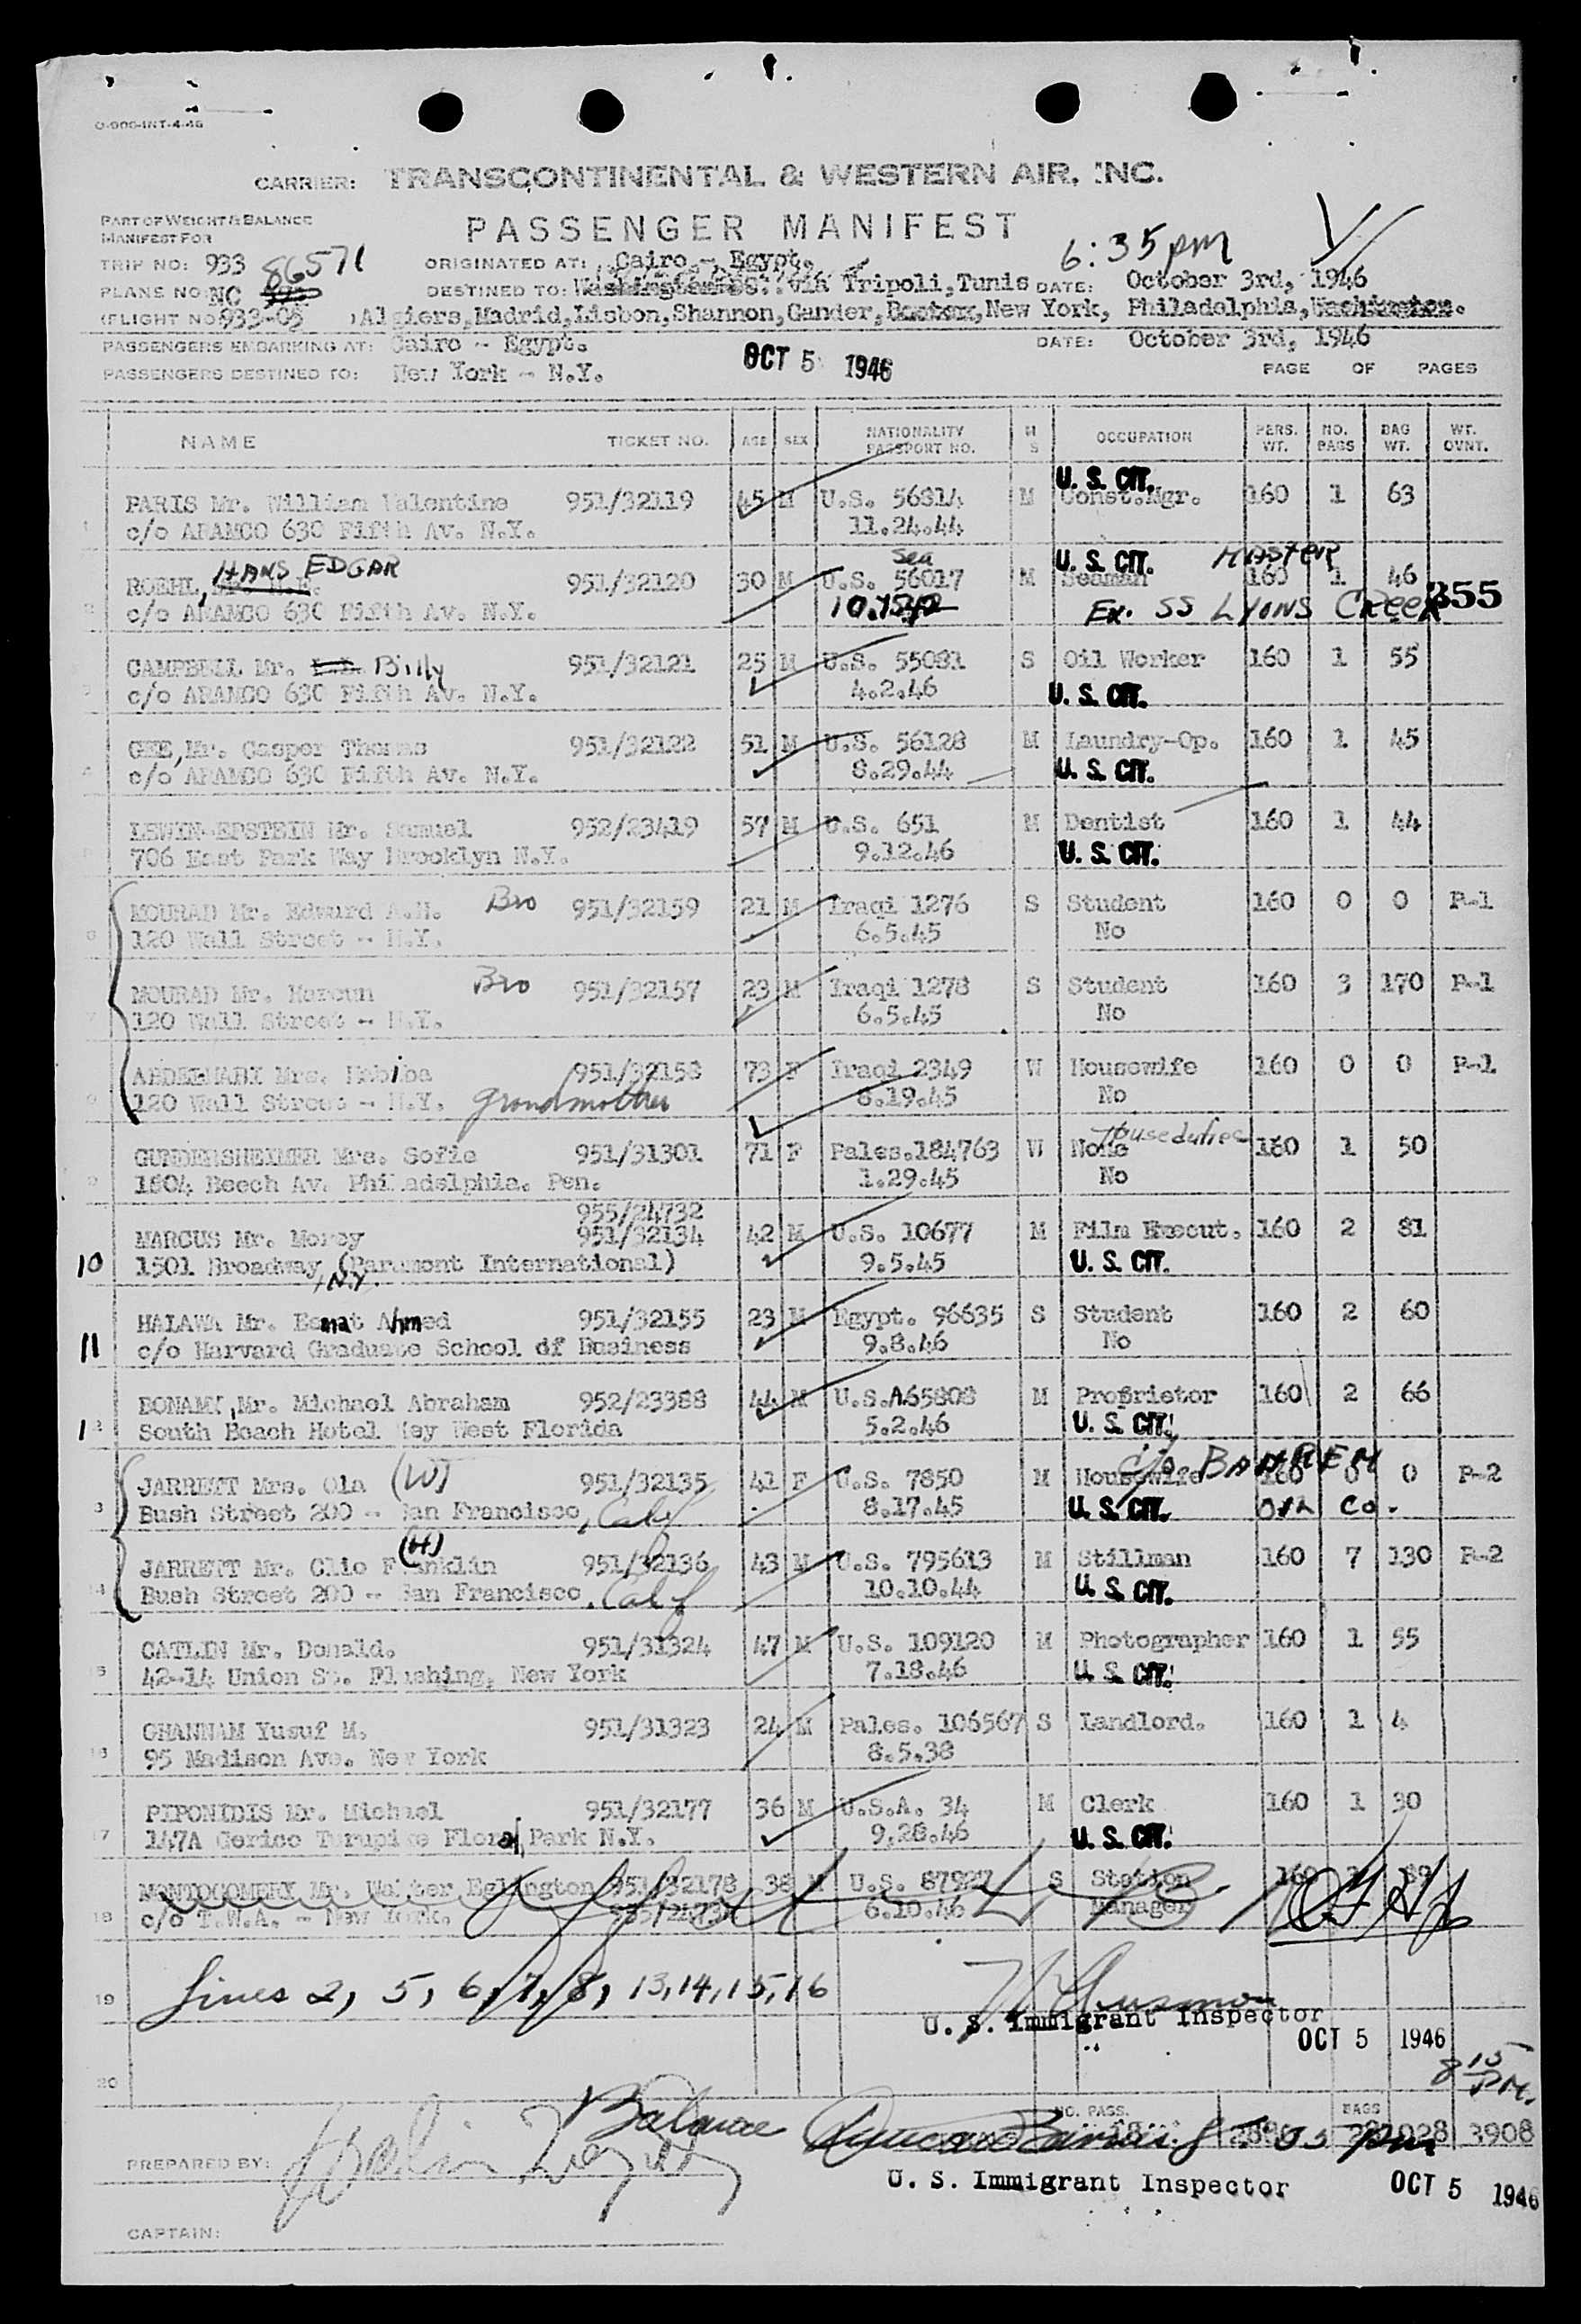 O-906-INT-4-46
CARRIER: TRANSCONTINENTAL & WESTERN AIR, INC.
PART OF WEIGHT & BALANCE
MANIFEST FOR
PASSENGER MANIFEST
6:35 pm
TRIP NO: 933 86571
ORIGINATED AT: Cairo - Egypt.
PLANE NO: NC
DESTINED TO: via Tripoli, Tunis
DATE: October 3rd, 1946
(FLIGHT NO 933-05 ) Algiers, Madrid, Lisbon, Shannon, Gander, Boston, New York, Philadelphia, Washington.
PASSENGERS EMBARKING AT: Cairo - Egypt.
DATE: October 3rd, 1946
PASSENGERS DESTINED TO: New York - N.Y.
OCT 5 1946
PAGE OF PAGES
NAME TICKET NO. AGE SEX NATIONALITY PASSPORT NO. M S OCCUPATION PERS. WT. NO. PASS BAG WT. WT. OVNT.
U. S. CIT.
PARIS Mr. William Valentine 951/32119 45 M U.S. 56814 M Const.Mgr. 160 1 63
c/o ARAMCO 630 Fifth Av. N.Y. 11.24.44
HANS EDGAR Sea U. S. CIT. MASTER
ROEHL, Mr. H.E. 951/32120 30 M U.S. 56017 M Seaman 160 1 46
c/o ARAMCO 630 Fifth Av. N.Y. Ex. SS LYONS CREEK 355
CAMPBELL Mr. Billy 951/32121 25 M U.S. 55081 S Oil Worker 160 1 55
c/o ARAMCO 630 Fifth Av. N.Y. 4.2.46 U. S. CIT.
GEE, Mr. Casper Thomas 951/32122 51 M U.S. 56128 M Laundry-Op. 160 1 45
c/o ARAMCO 630 Fifth Av. N.Y. 8.29.44 U. S. CIT.
LEWIN-EPSTEIN Mr. Samuel 952/23419 57 M U.S. 651 M Dentist 160 1 44
706 East Park Way Brooklyn N.Y. 9.12.46 U. S. CIT.
MOURAD Mr. Edward A.H. Bro 951/32159 21 M Iraqi 1276 S Student 160 0 0 P-1
120 Wall Street - N.Y. 6.5.45 No
MOURAD Mr. Haroun Bro 951/32157 23 M Iraqi 1278 S Student 160 3 170 P-1
120 Wall Street - N.Y. 6.5.45 No
Mrs. Habiba 951/32158 73 F Iraqi 2349 W Housewife 160 0 0 P-1
120 Wall Street - N.Y. grandmother 8.19.45 No
House duties
GUNDERSHEIMER Mrs. Sofie 951/31301 71 F Pales.184763 W None 160 1 50
1804 Beech Av. Philadelphia. Pen. 1.29.45 No
955/24732
MARCUS Mr. Morey 951/32134 42 M U.S. 10677 M Film Execut. 160 2 81
10 1501 Broadway (Paramont International) 9.5.45 U. S. CIT.
N.Y.
HALAWA Mr. Esmat Ahmed 951/32155 23 M Egypt. 96635 S Student 160 2 60
11 c/o Harvard Graduate School of Business 9.8.46 No
BONAMY, Mr. Michael Abraham 952/23388 44 M U.S.A65808 M Proprietor 160 2 66
12 South Beach Hotel Key West Florida 5.2.46 U. S. CIT.
c/o BAHREM
JARRETT Mrs. Ola (W) 951/32135 41 F U.S. 7850 M Housewife 160 0 0 P-2
Bush Street 200 - San Francisco, Calif 8.17.45 U. S. CIT. OIL Co.
(H)
JARRETT Mr. Clio Franklin 951/32136 43 M U.S. 795613 M Stillman 160 7 130 P-2
14 Bush Street 200 - San Francisco, Calif 10.10.44 U. S. CIT.
CATLIN Mr. Donald. 951/31324 47 M U.S. 109120 M Photographer 160 1 55
42-14 Union St. Flushing, New York 7.18.46 U. S. CIT.
GHANNAM Yusuf M. 951/31323 24 M Pales. 106567 S Landlord. 160 1 4
95 Madison Ave. New York 8.5.38
PIPONIDIS Mr. Michael 951/32177 36 M U.S.A. 34 M Clerk 160 1 30
17 147A Cerico Turnpike Floral Park N.Y. 9.28.46 U. S. CIT.
MONTGOMERY Mr. Walter Eglington 951/32178 38 M U.S. 87927 S Station 160
18 c/o T.W.A. - New York. 6.10.46 Manager
19 Lines 2, 5, 6, 7, 8, 13, 14, 15, 16
U. S. Immigrant Inspector
OCT 5 1946
20
8 15 PM.
Balance
NO. PASS. BAGS
3908
PREPARED BY:
U. S. Immigrant Inspector OCT 5 1946
CAPTAIN: